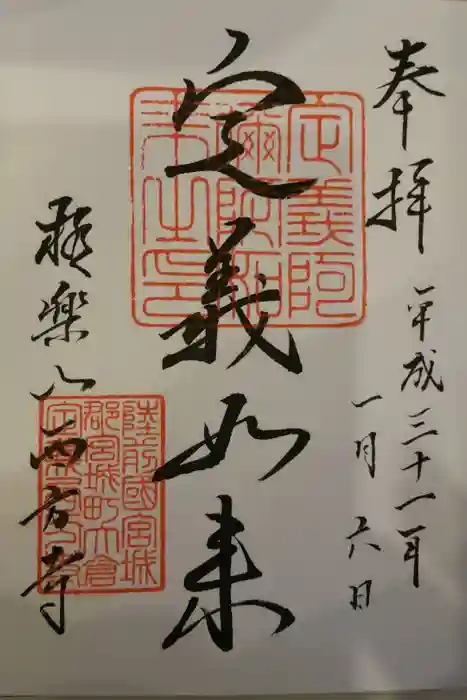 奉拝
平成三十一年
一月六日
定義如来
極楽山西方寺
定義阿
弥陀如
来之印
陸前國宮城
郡宮城町大倉